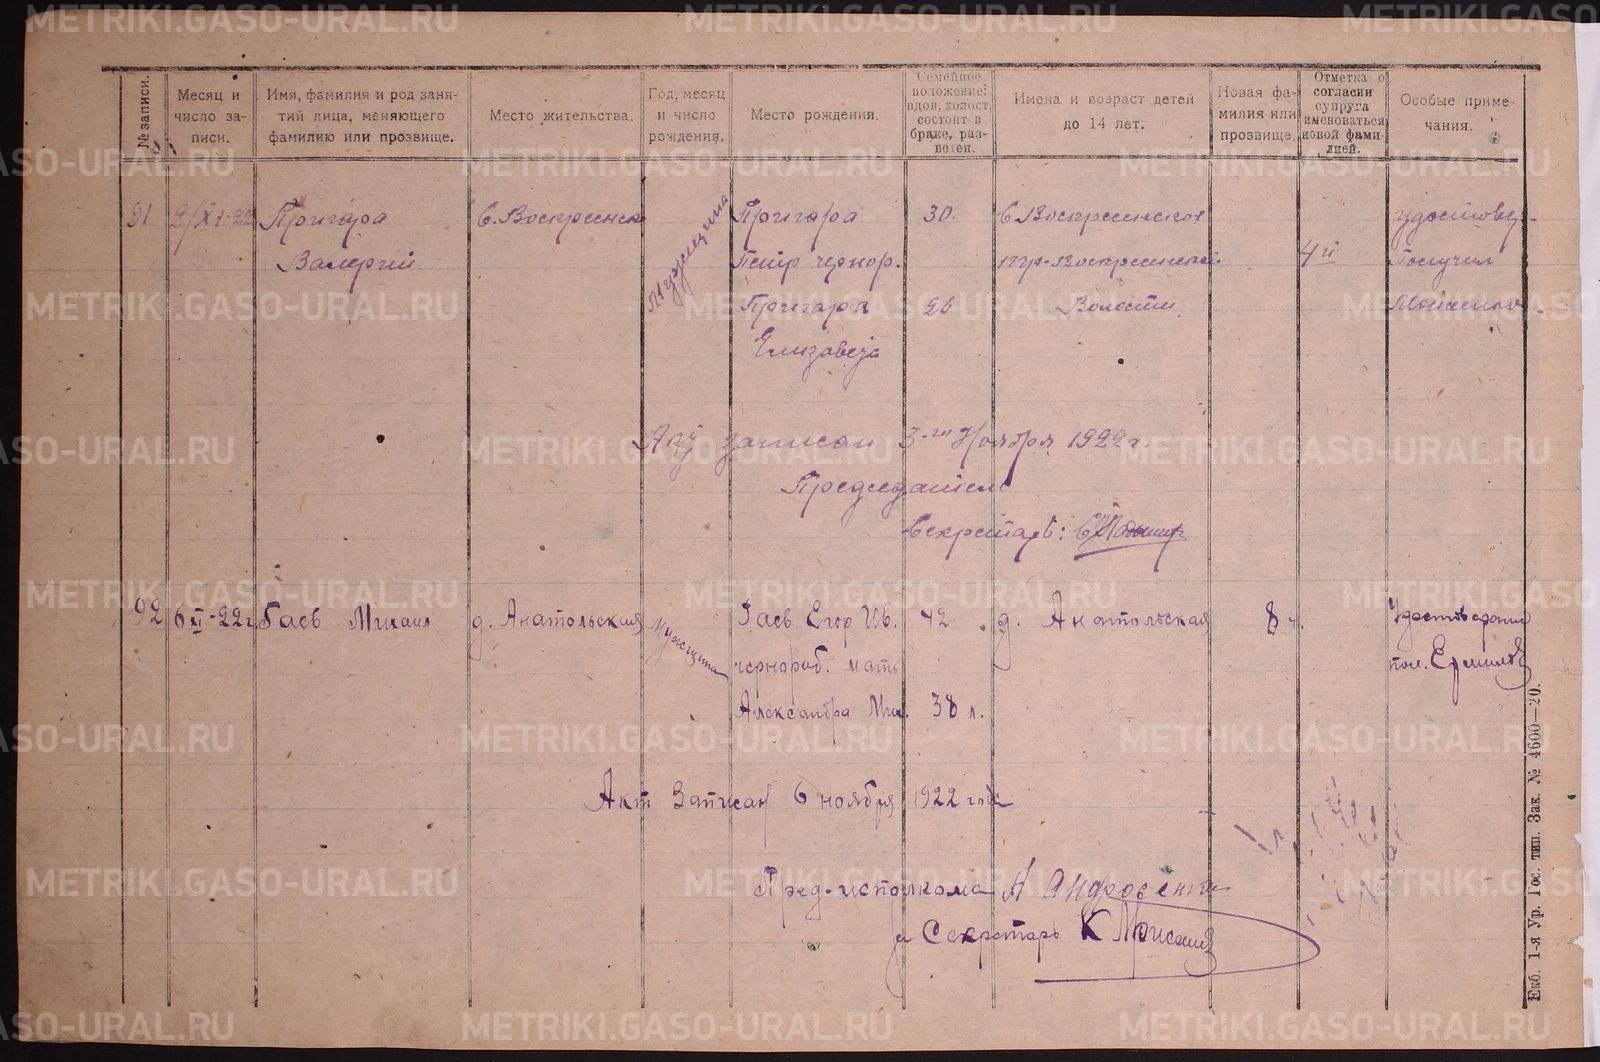 № записи.
Месяц и число записи.
Имя, фамилия и род занятий лица, меняющего фамилию или прозвище.
Место жительства.
Год, месяц и число рождения.
Место рождения.
Семейное положение: вдов, холост, состоит в браке, разведен.
Имена и возраст детей до 14 лет.
Новая фамилия или прозвище.
Отметка о согласии супруга именоваться новой фамилией.
Особые примечания.
91 2/XI-22 Пригара с. Воскресенск Мужщина Пригара 30. с Воскресенское удостовер.
Валерий Петр чернор. Воскресенской 4й Получил
Пригара 26 Волости.
Елизавета
Акт записан 3-го Ноября 1922 г.
Председатель
Секретарь:
92 6 XI-22 г. Гаев Михаил д. Анатольская Мужщина Гаев Егор Ив. 42 д. Анатольская 8 Удостоверение
чернораб. мать пол.
Александра Мих. 38 л.
Акт Записан 6 ноября 1922 года
Пред-исполкома А
и Секретарь К
Екб. 1-я Ур. Гос. тип. Зак. № 4600—20.
METRIKI.GASO-URAL.RU